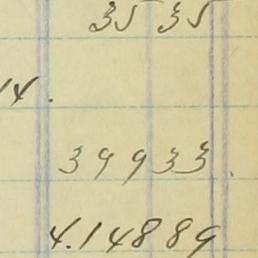 35 35
14.
39933.
4.14889